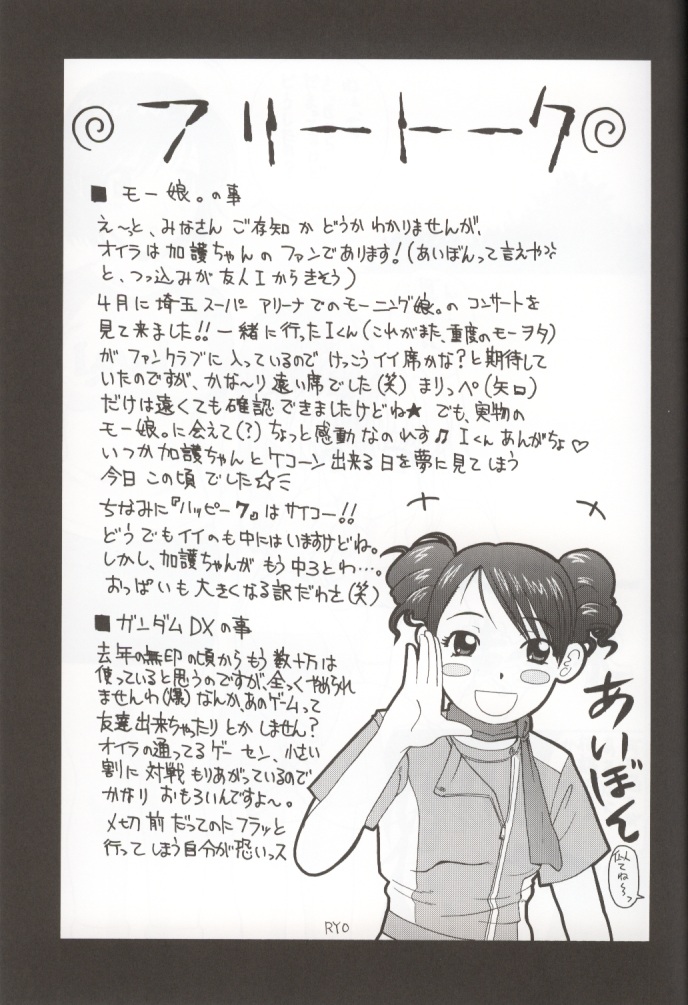 フリートーク
■ モー娘。の事
え〜っと、みなさん ご存知か どうか わかりませんが、
オイラは 加護ちゃんの ファンであります!(あいぼんって言えや
と、つっ込みが 友人Iから きそう)
4月に 埼玉スーパー アリーナでのモーニング娘。の コンサートを
見て来ました!! 一緒に行ったIくん(これがまた、重度のモーヲタ)
が ファンクラブに入っているので けっこうイイ席かな?と期待して
いたのですが、かな〜り遠い席でした(笑) まりっぺ(矢口)
だけは遠くても確認 できましたけどね★ でも、実物の
モー娘。に会えて(?)ちょっと感動なのれす♫ Iくん あんがちょ♡
いつか加護ちゃんとケコーン出来る日を夢に見てしまう
今日 この頃 でした☆
ちなみに『ハッピー7』はサイコー!!
どうでもイイのも中にはいますけどね。
しかし、加護ちゃんが もう中3とわ…。
おっぱいも大きくなる訳だわさ(笑)
■ ガンダムDXの事
去年の無印の頃から もう 数十万は
使っていると思うのですが、全っくやめられ
ませんわ(爆) なんか、あのゲームって
友達出来ちゃったりとか しません?
オイラの通ってるゲーセン、小さい
割に 対戦もりあがっているので
かなり おもろいんですよ〜。
〆切前だってのにフラッと
行ってしまう自分が恐いっス
あいぼん
似てね〜っ
RYO